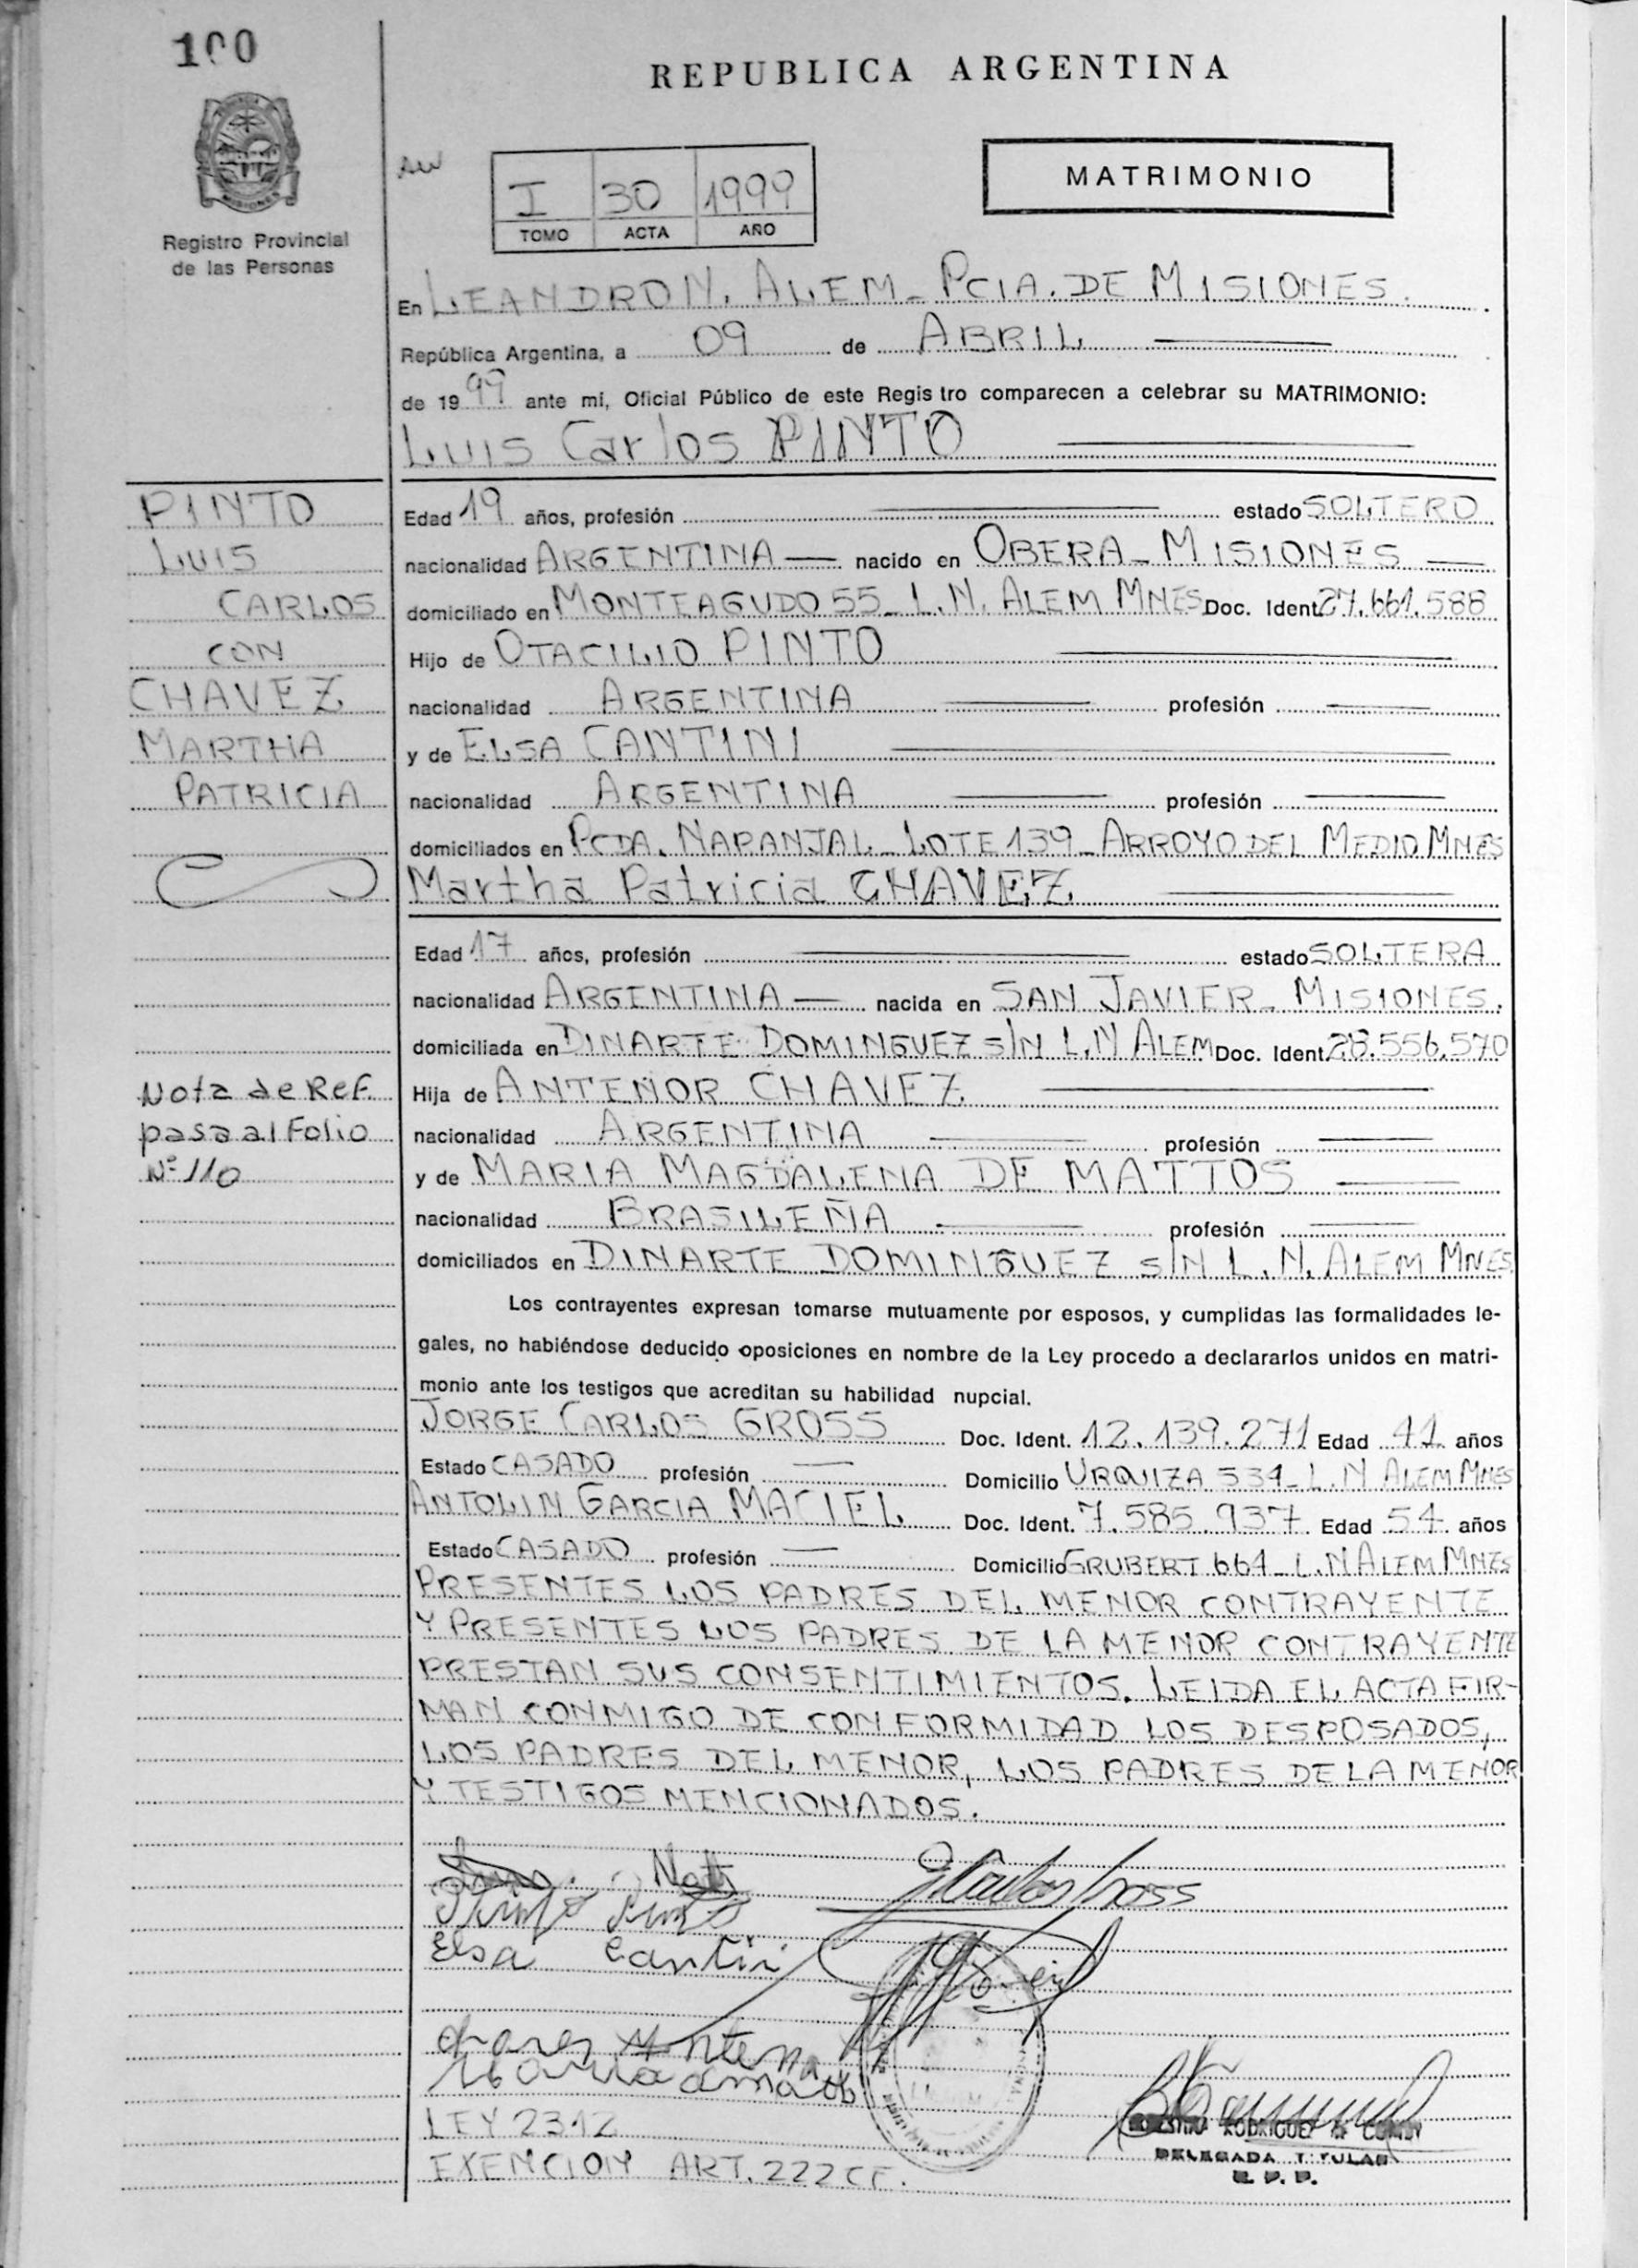 100
REPUBLICA ARGENTINA
MISIONES
Registro Provincial
de las Personas
I 30 1999
TOMO ACTA AÑO
MATRIMONIO
En LEANDRO N. ALEM - PCIA. DE MISIONES.
República Argentina, a 09 de ABRIL
de 1999 ante mi, Oficial Público de este Regis tro comparecen a celebrar su MATRIMONIO:
Luis Carlos PINTO
PINTO
LUIS
CARLOS
CON
CHAVEZ
MARTHA
PATRICIA
Edad 19 años, profesión estado SOLTERO
nacionalidad ARGENTINA nacido en OBERA - MISIONES
domiciliado en MONTEAGUDO 55 - L.N. ALEM MNES Doc. Ident. 27.661.588
Hijo de OTACILIO PINTO
nacionalidad ARGENTINA profesión
y de ELSA CANTINI
nacionalidad ARGENTINA profesión
domiciliados en PCDA. NARANJAL - LOTE 139 - ARROYO DEL MEDIO MNES
Martha Patricia CHAVEZ
Edad 17 años, profesión estado SOLTERA
nacionalidad ARGENTINA nacida en SAN JAVIER - MISIONES.
domiciliada en DINARTE DOMINGUEZ S/N L.N ALEM Doc. Ident. 28.556.570
Nota de Ref.
pasa al Folio
Nº 110
Hija de ANTENOR CHAVEZ
nacionalidad ARGENTINA profesión
y de MARIA MAGDALENA DE MATTOS
nacionalidad BRASILEÑA profesión
domiciliados en DINARTE DOMINGUEZ S/N L.N. ALEM MNES
Los contrayentes expresan tomarse mutuamente por esposos, y cumplidas las formalidades le-
gales, no habiéndose deducido oposiciones en nombre de la Ley procedo a declararlos unidos en matri-
monio ante los testigos que acreditan su habilidad nupcial.
JORGE CARLOS GROSS Doc. Ident. 12.139.271 Edad 41 años
Estado CASADO profesión Domicilio URQUIZA 531 - L.N ALEM MNES
ANTOLIN GARCIA MACIEL Doc. Ident. 7.585.937 Edad 54 años
Estado CASADO profesión Domicilio GRUBERT 661 - L.N ALEM MNES
PRESENTES LOS PADRES DEL MENOR CONTRAYENTE
Y PRESENTES LOS PADRES DE LA MENOR CONTRAYENTE
PRESTAN SUS CONSENTIMIENTOS. LEIDA EL ACTA FIR-
MAN CONMIGO DE CONFORMIDAD LOS DESPOSADOS,
LOS PADRES DEL MENOR, LOS PADRES DE LA MENOR
Y TESTIGOS MENCIONADOS.
Elsa Cantini
LEY 2312
EXENCION ART. 222 CF.
RODRIGUEZ
DELEGADA TITULAR
R. P. P.